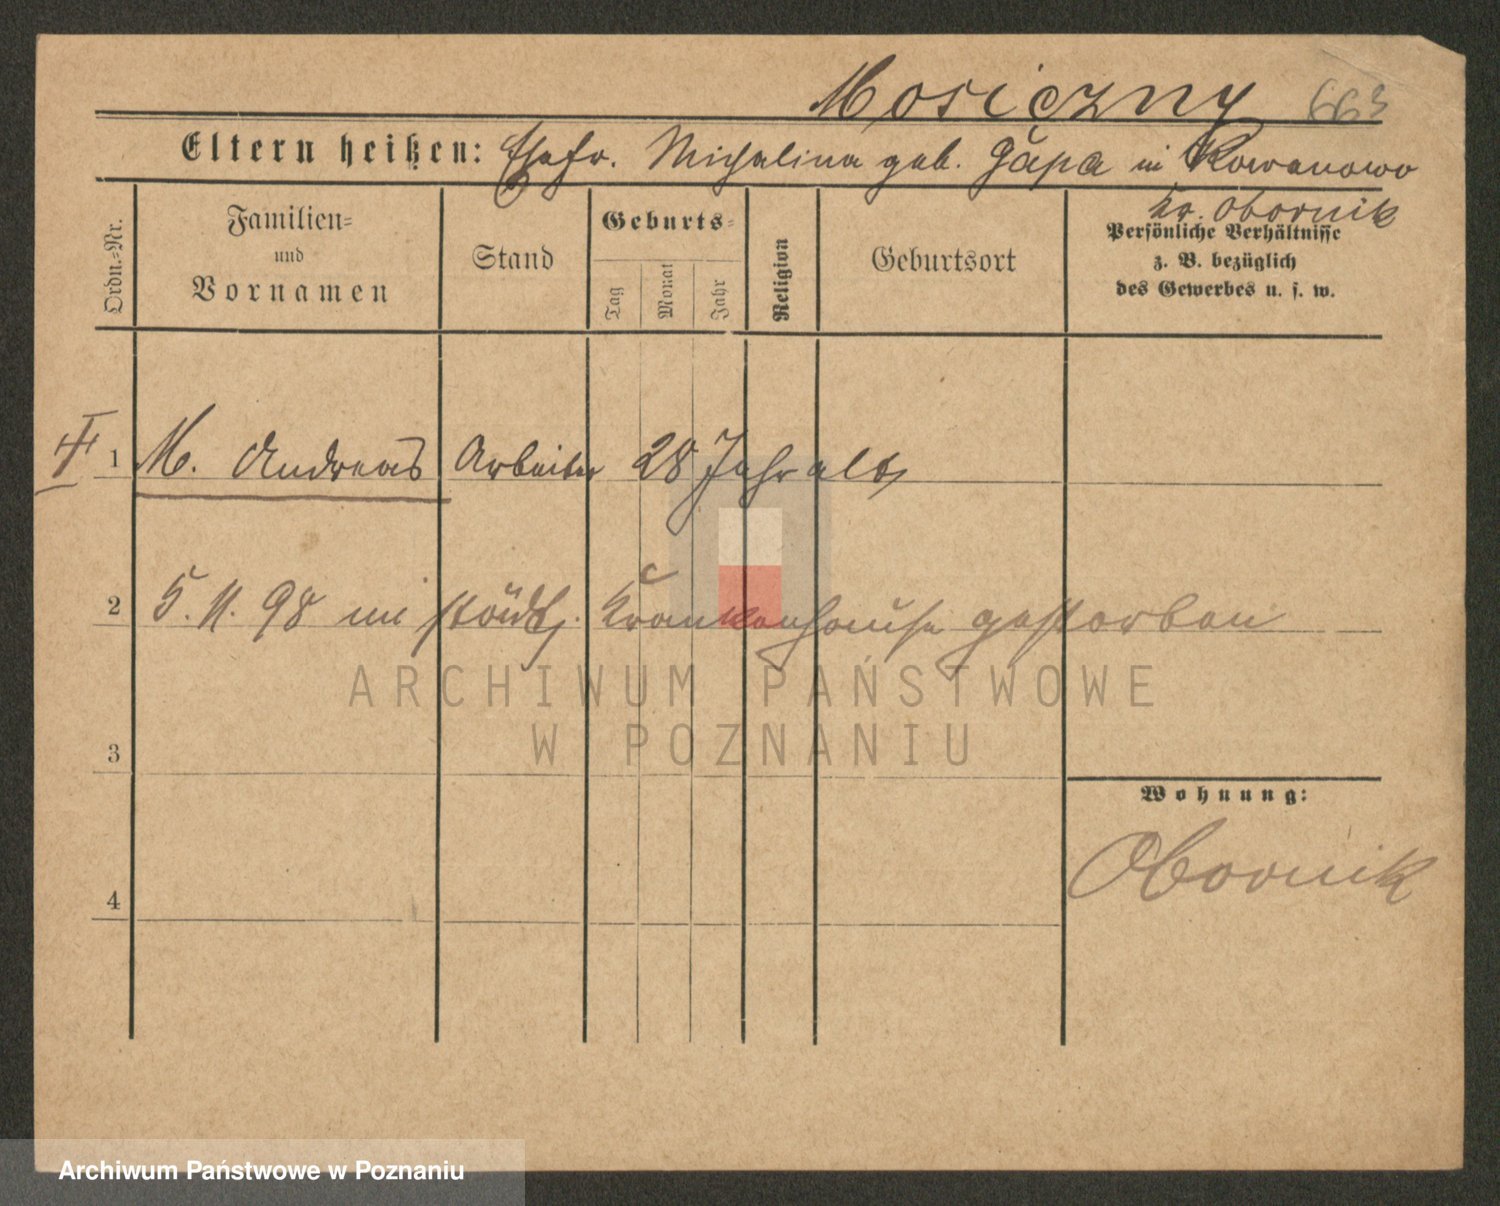 Mosiczny 663
Eltern heißen: Ehefr. Michalina geb. Gąpa in Kowanowo
Kr. Obornik
Ordn.-Nr.
Familien-
und
Vornamen
Stand
Geburts-
Tag
Monat
Jahr
Religion
Geburtsort
Persönliche Verhältnisse
z. B. bezüglich
des Gewerbes u. s. w.
1 M. Andreas Arbeiter 28 Jahr alt,
2 5. 11. 98 im städt. Krankenhause gestorben
ARCHIWUM PAŃSTWOWE
W POZNANIU
3
Wohnung:
Obornik
4
Archiwum Państwowe w Poznaniu